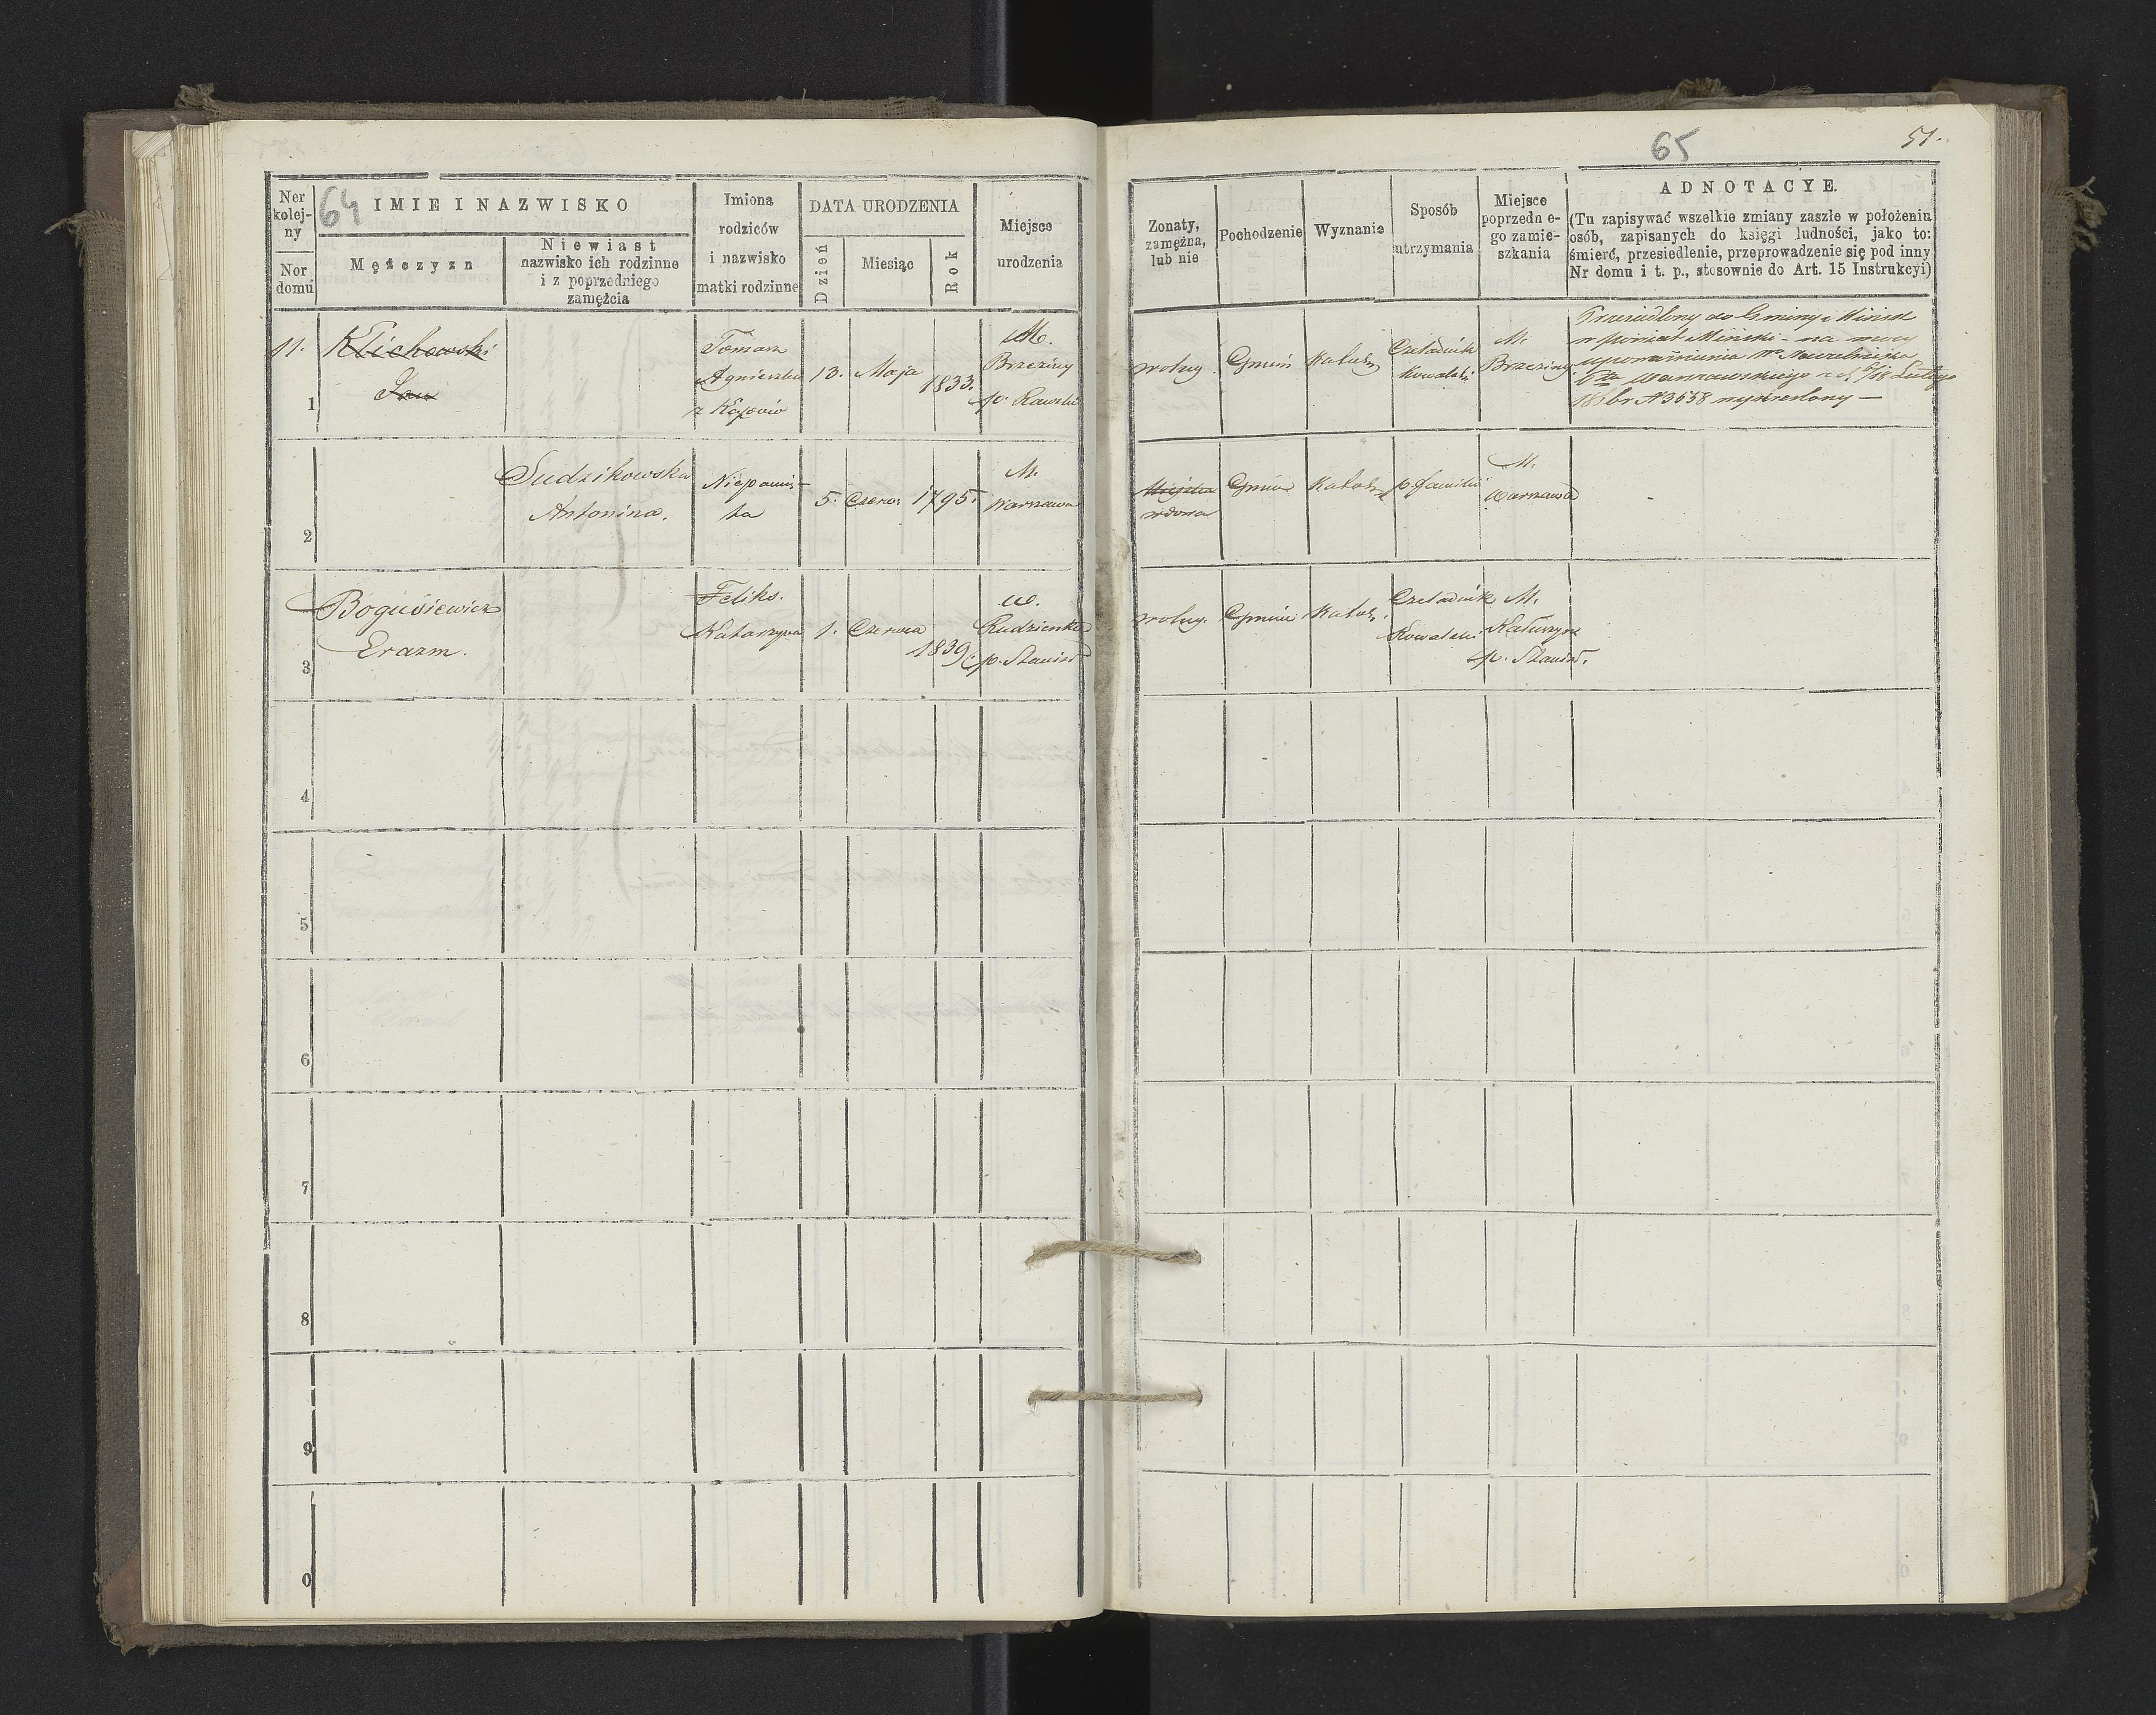 64
Ner kolejny
Nor domu
IMIE I NAZWISKO
Mężczyzn
Niewiast
nazwisko ich rodzinne
i z poprzedniego
zamęźcia
Imiona
rodziców
i nazwisko
matki rodzinne
DATA URODZENIA
Dzień
Miesiąc
Rok
Miejsce
urodzenia
11.
1
Klichowski
Jan
Tomasz
Agnieszka
z
13. Maja 1833.
M.
Brzeziny
p. Rawski
2
Sudzikowska
Antonina.
Niepamię-
ta
5. Czerw. 1795.
M.
Warszawa
3
Bogusiewicz
Erazm.
Feliks.
Katarzyna
1. Czerwca 1839
W.
Rudzienko
p. Stanisł
4
5
6
7
8
9
0
65
51.
Zonaty,
zamężna,
lub nie
Pochodzenie
Wyznanie
Sposób
utrzymania
Miejsce
poprzedn e-
go zamie-
szkania
ADNOTACYE.
(Tu zapisywać wszelkie zmiany zaszłe w położeniu
osób, zapisanych do księgi ludności, jako to:
śmierć, przesiedlenie, przeprowadzenie się pod inny
Nr domu i t. p., stosownie do Art. 15 Instrukcyi)
wolny
Gmin
Katol.
Czeladnik
Kowalski
M.
Brzeziny.
Przesiedlony do Gminy i Mińsk
w Powiat Miński - na mocy
upoważnienia Naczelnika
Ptu Warszawskiego z d. 6/18 Lutego
N 3658 wykreślony —
wdowa
Gmin
Katol.
p. familii
M.
Warszawa
wolny.
Gmin
Katol.
Czeladnik
Kowalski
M.
Kałuszyn
p. Stanisł.